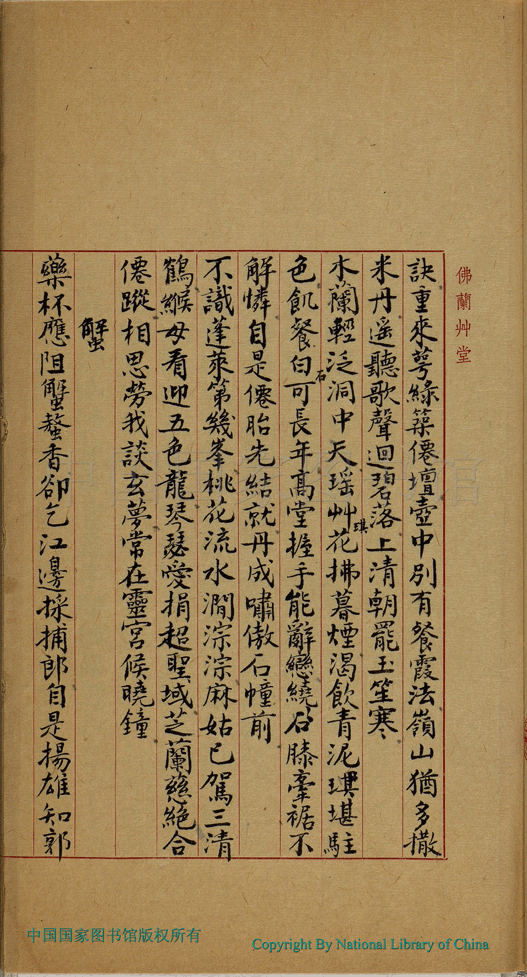 佛蘭艸堂
訣重來萼綠築僊壇壺中別有餐霞法嶺山猶多撒
米丹遙聽歌聲迴碧落上清朝罷玉笙寒
木蘭輕泛洞中天瑤艸琪花拂暮煙渴飲青泥琪堪駐
色飢餐白石可長年高堂握手能辭戀繞石膝牽裾不
解憐自是僊胎先結就丹成嘯傲石幢前
不識蓬萊第幾峯桃花流水澗淙淙麻姑已駕三清
鶴緱母看迎五色龍琴瑟愛捐超聖域芝蘭慈絕合
僊蹤相思勞我談玄夢常在靈宮候曉鐘
蟹
藥杯應阻蟹螯香卻乞江邊採捕郎自是揚雄知郭
中国国家图书馆版权所有
Copyright By National Library of China